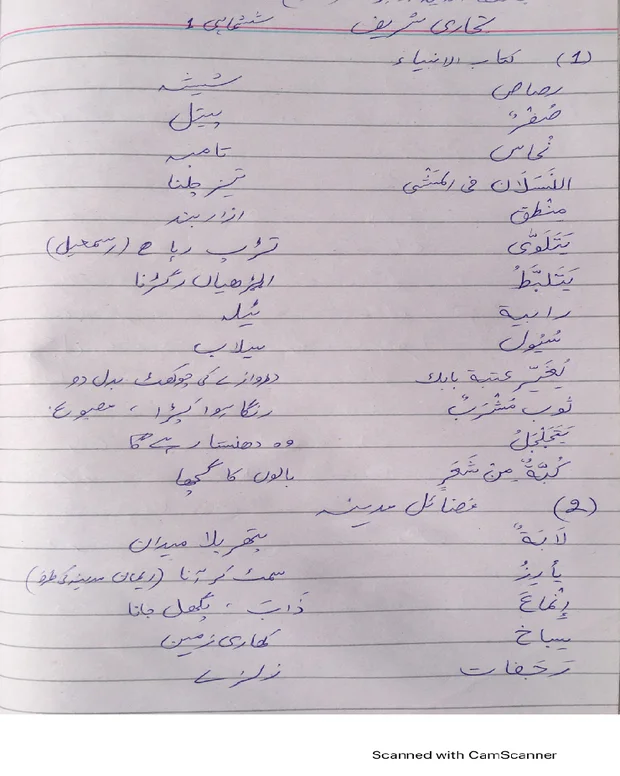 بخاری شریف ششماہی 1
(1) کتاب الانبیاء
رصاص شیشہ
صُفْرٌ پیتل
نُحاس تامبہ
النَّسَلَان فی المَشْی تیز چلنا
مِنْطق ازار بند
یَتَلَوّٰی تڑپ رہا ھے (اسمعیل)
یَتَلَبَّطُ ایڑھیاں رگڑنا
رابیة ٹیلہ
سُیُول سیلاب
یُغَیِّر عتبة بابك دروازے کی چوکھٹ بدل دو
ثوب مُشْرَبٌ رنگا ہوا کپڑا ، مصبوغ
یَتَجَلْجَلُ وہ دھنستا رہے گا
کُبَّةٌ مِنْ شَعَرٍ بالوں کا گچھا
(2) فضائل مدینہ
لَابَةٌ پتھریلا میدان
یأرِزُ سمٹ کر آنا (ایمان مدینہ کی طرف)
اِنْمَاعَ ذَابَ ، پگھل جانا
سِباخ کھاری زمین
رَجَفات زلزلے
Scanned with CamScanner